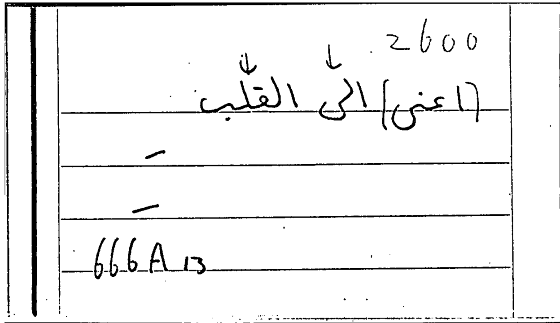 2600
(اعني) الى القلب
666A 13